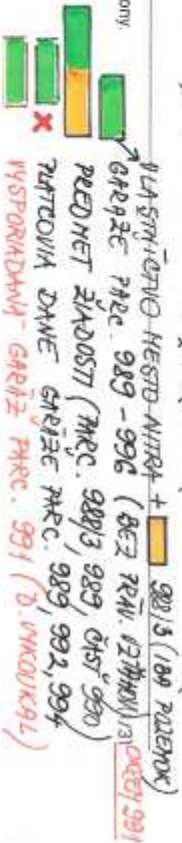 ony.
VLASTNÍCTVO MESTO NITRA + 988/3 (IBA POZEMOK)
GARÁŽE PARC. 989 - 996 (BEZ PRÁV. VZŤAHOV)
OKREM 991
PREDMET ŽIADOSTI (PARC. 988/3, 989, ČASŤ 990)
PLATCOVIA DANE GARÁŽE PARC. 989, 992, 994
VYSPORIADANÁ GARÁŽ PARC. 991